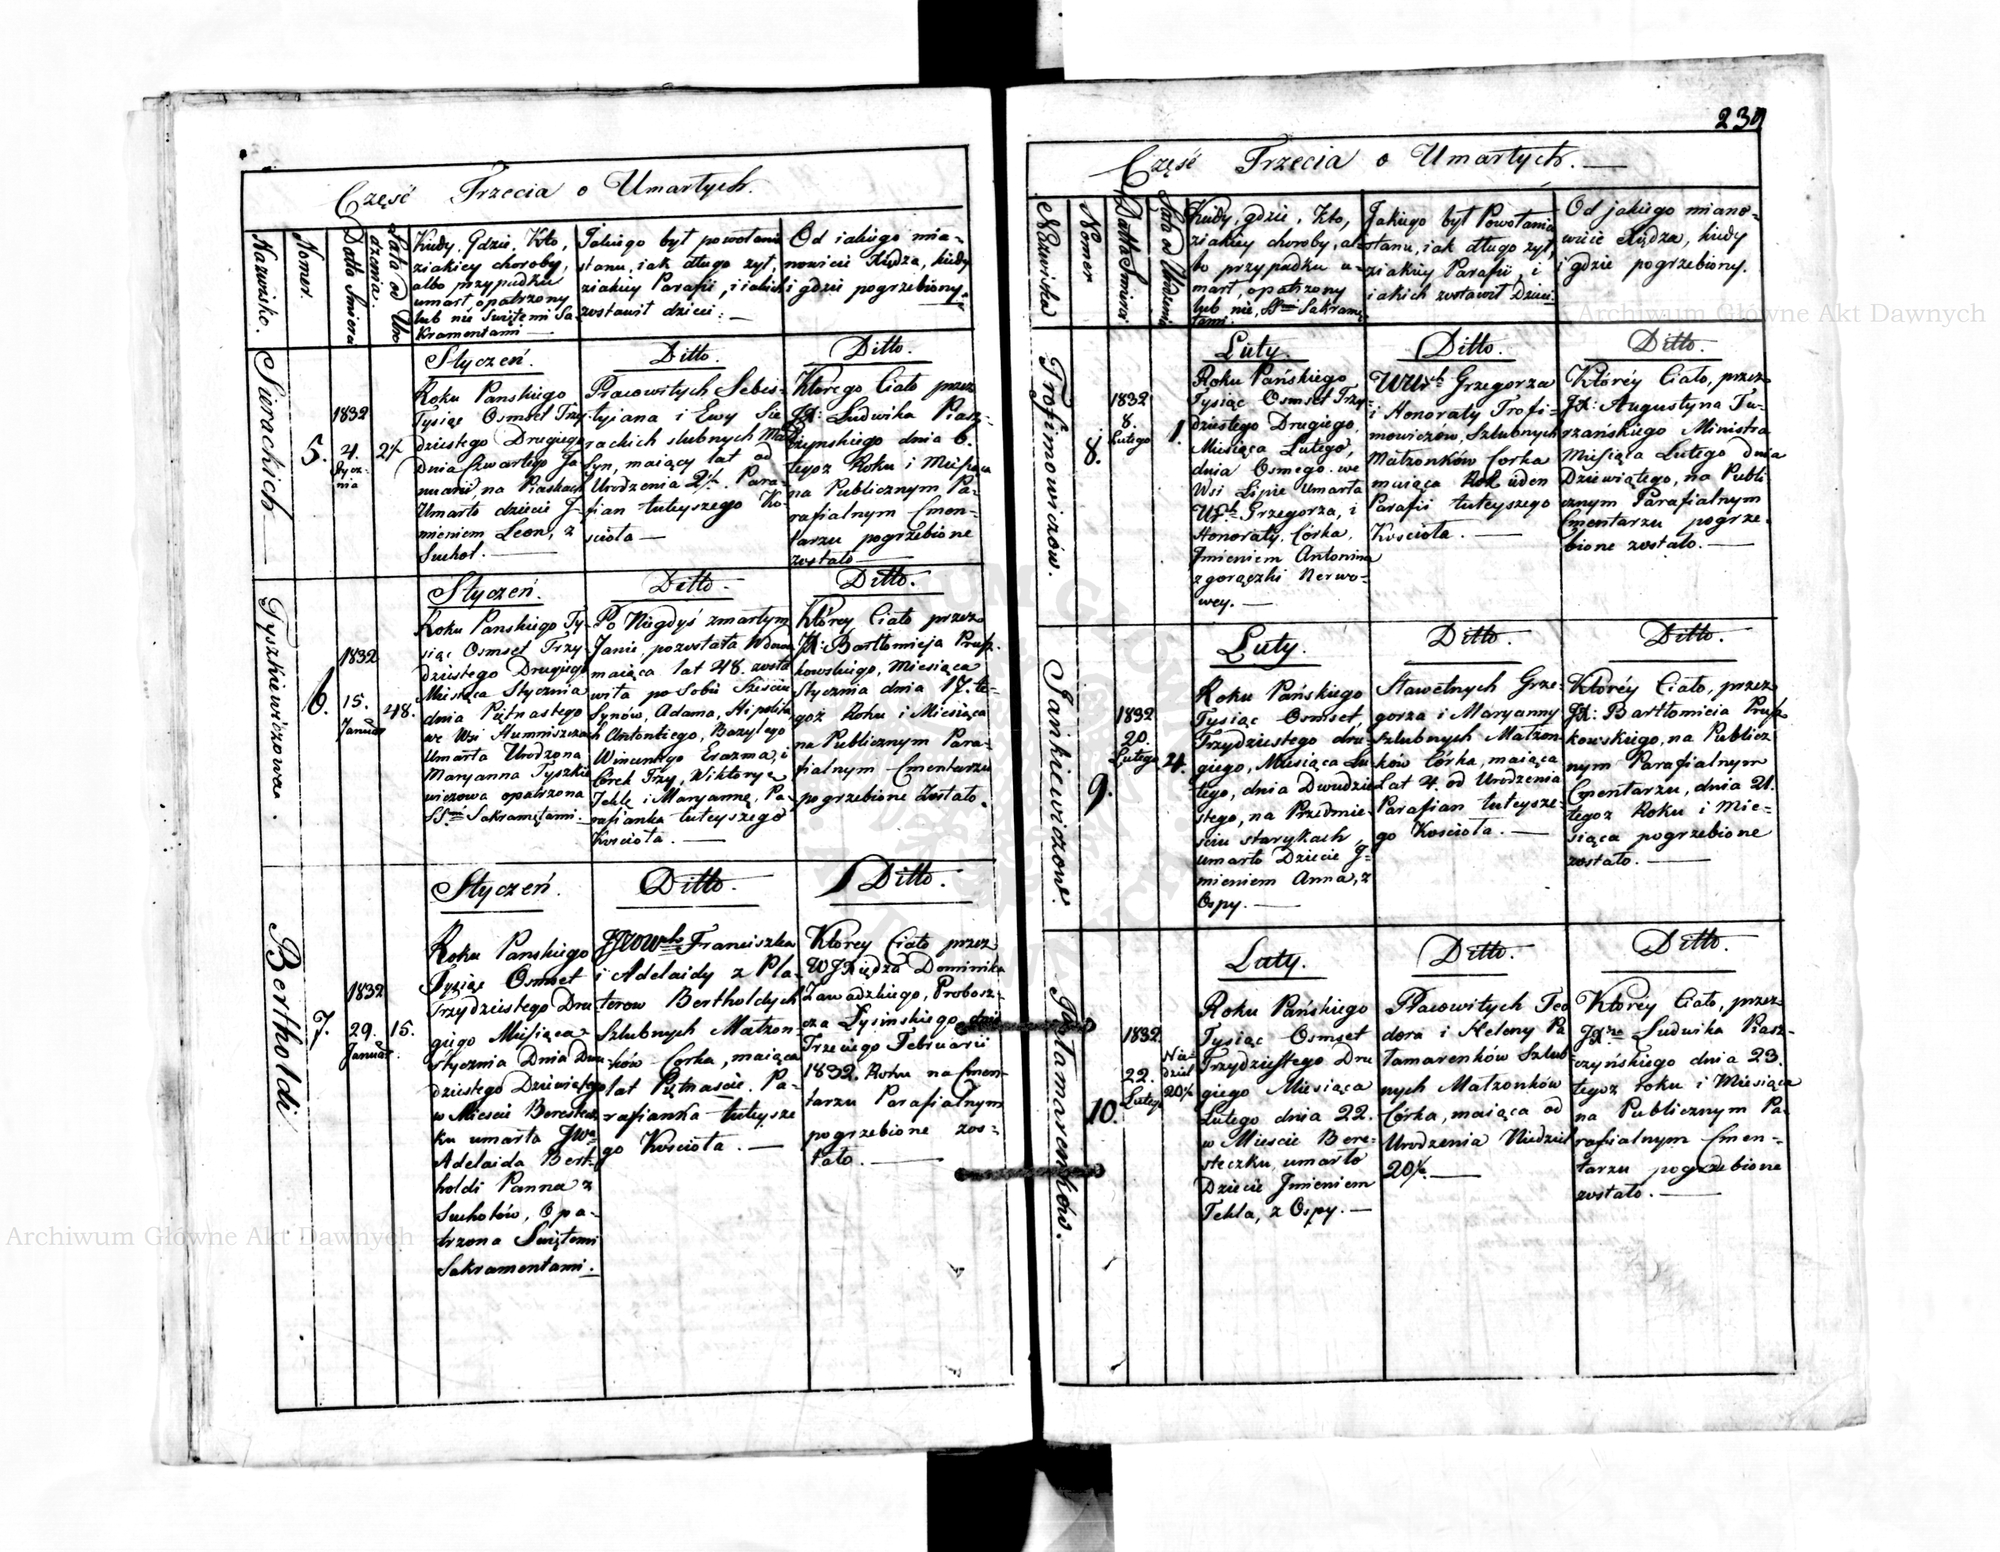 Część Trzecia o Umarłych.
Nazwisko.
Nomer.
Datto Smierci
Lata od Uro
dzenia.
Kiedy. Gdzie. Kto,
ziakiey choroby,
albo przypadku
umarł, opatrzony
lub nie Swiętemi Sa-
kramentami —
Jakiego był powołania
stanu, iak długo zył,
ziakiey Parafii, i iakich
zostawił dzieci: —
Od iakiego mia-
nowicie Xiędza, kiedy
i gdzie pogrzebiony.
Sierackich
5.
1832
4.
Stycz-
nia
2½
Styczeń.
Roku Panskiego
Tysiąc Osmset Trzy-
dziestego Drugiego
Dnia Czwartego Ja
nuarii, na Piaskach
Umarło dziecie J-
mieniem Leon, z
Suchot. —
Ditto.
Pracowitych Sebes-
tyjana i Ewy Sie
rackich slubnych Mał
Syn, maiący lat od
Urodzenia 2½. Para-
fian tuteyszego Ko-
scioła —
Ditto.
Którego Ciało przez
JX: Ludwika Piasz-
czynskiego dnia 6.
tegoz Roku i Miesiąca
na Publicznym Pa-
rafialnym Cmen-
tarzu pogrzebione
zostało —
Tyszkiewiczowa.
6.
1832
15.
Januar
48.
Styczeń.
Roku Panskiego Ty-
siąc Osmset Trzy-
dziestego Drugiego
Miesiąca Stycznia
dnia Piętnastego
we Wsi Humniszczach
Umarła Urodzona
Maryanna Tyszkie
wiczowa opatrzona
SSmi Sakramętami.
Ditto.
Po Niegdyś zmarłym
Janie, pozostała Wdowa
maiąca lat 48. zosta
wiła po Sobie Sześciu
Synów, Adama, Hipolita
Antoniego, Bazylego
Wincentego Erazma, i
Córek Trzy, Wiktoryę
Teklę i Maryannę, Pa-
rafianka tuteyszego
Koscioła. —
Ditto.
Którey Ciało przez
JX: Bartłomieja Prusz-
kowskiego, Miesiąca
Stycznia dnia 17. te-
goż Roku i Miesiąca
na Publicznym Para-
fialnym Cmentarzu
pogrzebione Zostało.
Bertholdi
7.
1832
29.
Januar.
15.
Styczeń.
Roku Panskiego
Tysiąc Osmset
Trzydziestego Dru
giego Miesiąca
Stycznia Dnia Dwu
dziestego Dziewiątego
w Miescie Berestecz
ku umarła JWa
Adelaida Bert-
holdi Panna z
Suchotów, Opa-
trzona Swiętemi
Sakramentami.
Ditto.
JWWch Franciszka
i Adelaidy z Pla-
terow Bertholdych
Szlubnych Małzon-
ków Corka, maiąca
lat Piętnascie. Pa-
rafianka tuteysze
go Koscioła. —
Ditto.
Ktorey Ciało przez
WJXiędza Dominika
Zawadzkiego, Probosz-
cza Łysinskiego dnia
Trzeciego Februarii
1832. Roku na Cmen-
tarzu Parafialnym
pogrzebione zos-
tało. —
239
Część Trzecia o Umarłych. —
Nazwisko
Nomer
Datta Smierci
Lata od Urodzenia
Kiedy, gdzie, Kto,
ziakiey choroby, al-
bo przypadku u-
marł, opatrzony
lub nie, SSmi Sakramę
tami.
Jakiego był Powołania
stanu, iak długo zył,
ziakiey Parafii, i
iakich zostawił Dzieci.
Od jakiego miano-
wicie Xiędza, kiedy
i gdzie pogrzebiony.
Trofimowiczów.
8.
1832
8.
Lutego
1.
Luty.
Roku Pańskiego
Tysiąc Osmset Trzy-
dziestego Drugiego,
Miesiąca Lutego,
dnia Osmego we
Wsi Lipie Umarła
Grzegorza, i
Honoraty, Córka,
Jmieniem Antonina
z gorączki Nerwo-
wey. —
Ditto.
Grzegorza
i Honoraty Trofi-
mowiczów, Szlubnych
Matzonków Corka
maiąca Rok ieden
Parafii tuteyszego
Koscioła. —
Ditto.
Któréy Ciało, przez
JX: Augustyna Tu-
rzańskiego Ministra
Miesiąca Lutego dnia
Dziewiątego, na Publi
cznym Parafialnym
Cmentarzu pogrze-
bione zostało. —
Jankiewiczow.
9.
1832
20.
Lutego
4.
Luty.
Roku Pańskiego
Tysiąc Osmset,
Trzydziestego dru-
giego, Miesiąca Lu
tego, dnia Dwudzie
stego, na Przedmie-
sciu starykach,
umarło Dziecie J-
mieniem Anna, z
Ospy. —
Ditto.
Sławetnych Grze-
gorza i Maryanny
Szlubnych Małzon-
ków Córka, maiąca
Lat 4. od Urodzenia
Parafian tuteysze-
go Koscioła. —
Ditto.
Któréy Ciało, przez
JX: Bartłomieia Prusz
kowskiego, na Publicz
nym Parafialnym
Cmentarzu, dnia 21.
tegoz Roku i Mie-
siąca pogrzebione
zostało. —
Patamarenków. —
10.
1832
22.
Luteg
Nie-
dziel
20½
Luty.
Roku Pańskiego
Tysiąc Osmset
Trzydziestego Dru
giego Miesiąca
Lutego dnia 22.
w Miescie Bere-
steczku, umarło
Dziecie Jmieniem
Tekla, z Ospy. —
Ditto.
Pracowitych Teo
dora i Heleny Pa
tamarenków Szlub-
nych Matzonków
Córka, maiąca od
Urodzenia Niedziel
20½. —
Ditto.
Ktorey Ciało, przez
Ludwika Piasz-
czyńskiego dnia 23.
tegoz roku i Miesiąca
na Publicznym Pa-
rafialnym Cmen-
tarzu pogrzebione
zostało. —
Archiwum Główne Akt Dawnych
Archiwum Główne Akt Dawnych